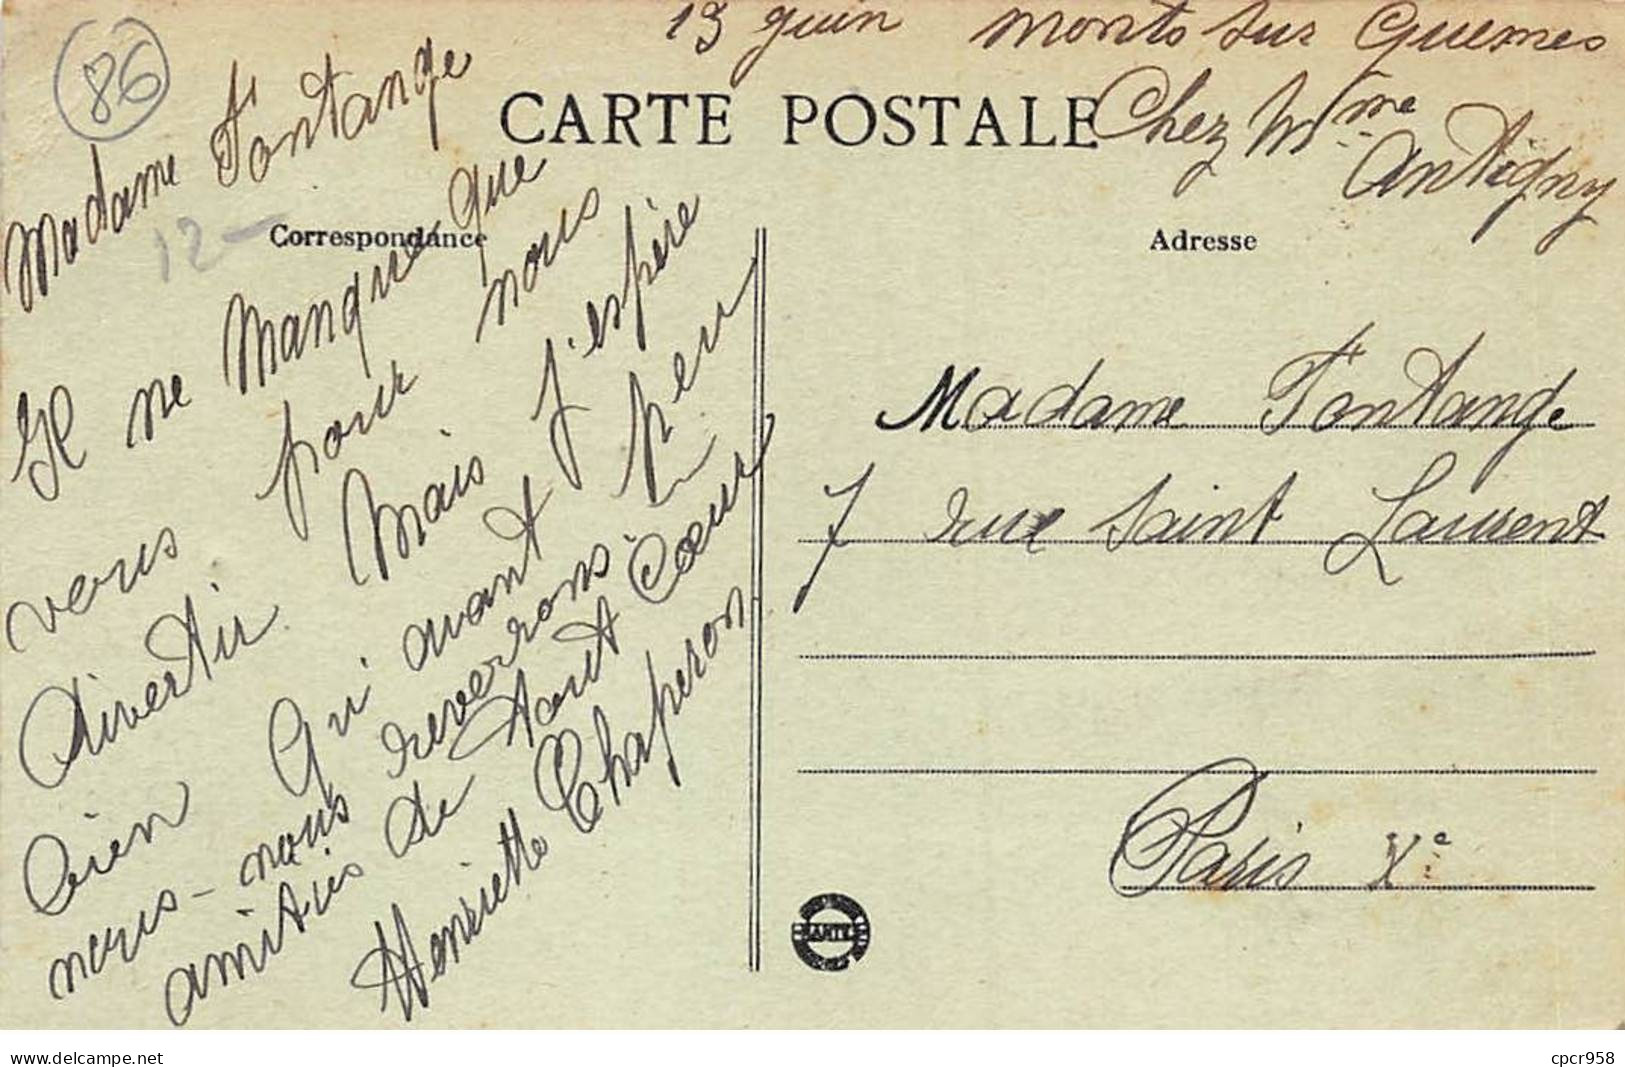 19 juin Monts sur Guemes
Chez Mme
Antigny
86
CARTE POSTALE
12-
Correspondance
Adresse
Madame Fontange
Il ne manque que
vous pour nous
divertir. Mais j'espère
bien qu'avant peu
nous-nous reverrons.
amitiés de tout cœur
Henriette Chaperon
Madame Fontange
7 rue Saint Laurent
Paris Xe
CARTE
www.delcampe.net
cpcr958